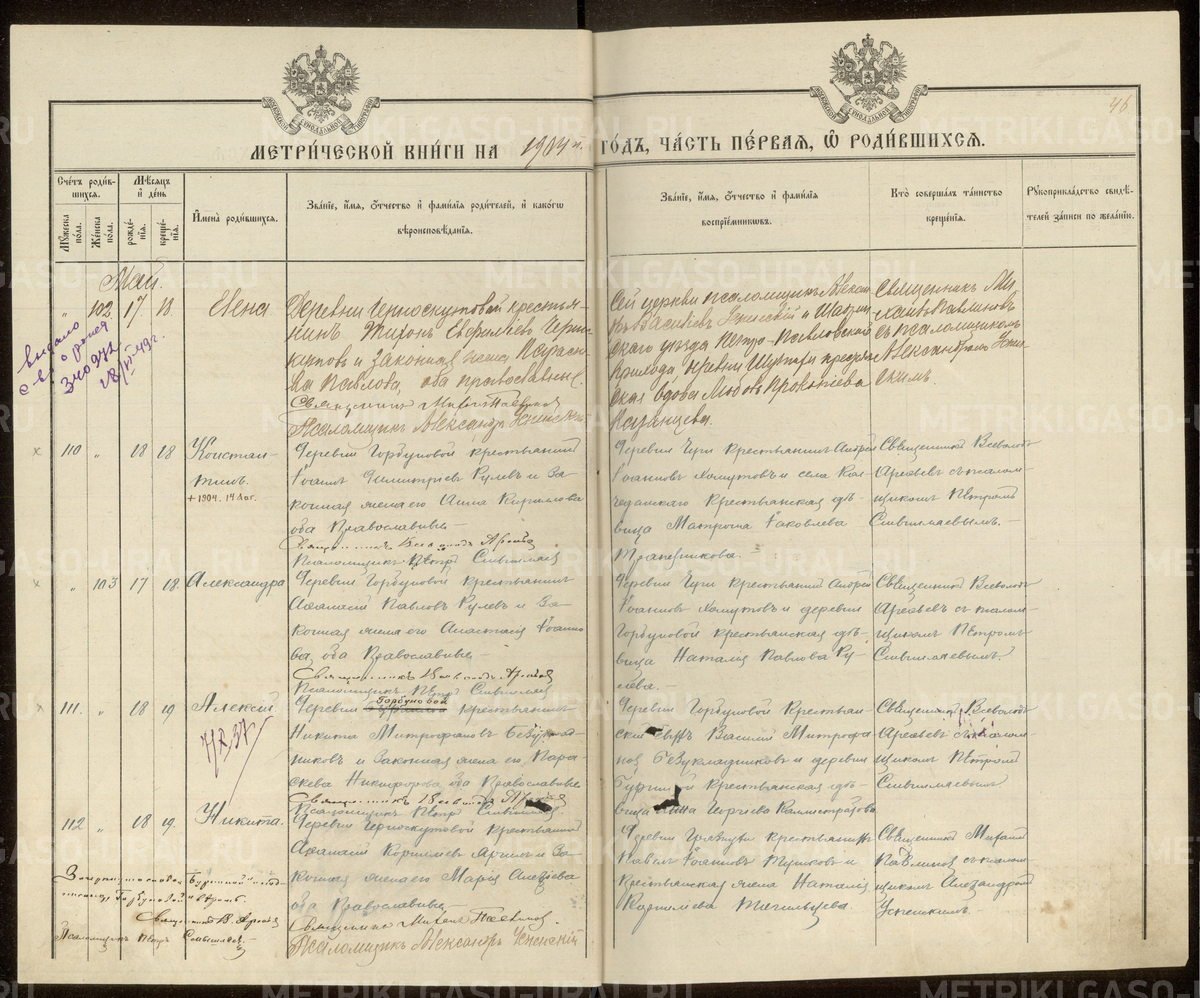 46
МЕТРИЧЕСКОЙ КНИГИ НА 1904 г. ГОДЪ, ЧАСТЬ ПЕРВАЯ, Ѿ РОДИВШИХСЯ.
Счетъ родив-
шихся.
Мужеска пола.
Женска пола.
Мѣсяцъ и день
рожде-
нія.
креще-
нія.
Имена родившихся.
Званіе, имя, отчество и фамилія родителей, и какого
вѣроисповѣданія.
Званіе, имя, отчество и фамилія
воспріемниковъ.
Кто совершалъ таинство
крещенія.
Рукоприкладство свидѣ-
телей записи по желанію.
Май.
" 102 17 18 Елена
Деревни Черноскутовой крестья-
нинъ Тихонъ Евфимiевъ Черно-
скутовъ и законная жена Параске-
ва Павлова, оба православные.
Псаломщикъ Александръ Успенскій
Сей церкви псаломщикъ
Василіевъ Успенскій и
скаго уѣзда Петро-Павловской
прихода деревни
ская вдова Любовь Прокопіева
Казанцева.
Священникъ Ми-
хаилъ Павлиновъ
съ псаломщикомъ
Александромъ Успен-
скимъ.
выдано
св. о рожд.
110 " 18 18 Констан-
тинъ.
+ 1904. 14 Авг.
Деревни Горбуновой крестьянинъ
Іоаннъ Димитріевъ Рулевъ и за-
конная жена его Анна Кириллова
оба Православные
Священникъ Всеволодъ Арефьевъ
Крестьянинъ Андрей
Іоанновъ Хомутовъ и села Кол-
чеданскаго крестьянская дѣ-
вица Матрона Іаковлева
Священникъ Всеволодъ
Арефьевъ съ псалом-
щикомъ Петромъ
" 103 17 18. Александра
Деревни Горбуновой крестьянинъ
Аѳанасій Павловъ Рулевъ и за-
конная жена его Анастасія Іоанно-
ва, оба Православные
Священникъ Всеволодъ Арефьевъ
крестьянинъ Андрей
Іоанновъ Хомутовъ и деревни
Горбуновой крестьянская дѣ-
вица Наталія Павлова Ру-
лева.
Священникъ Всеволодъ
Арефьевъ съ псалом-
щикомъ Петромъ
111. " 18 19 Алексій.
7/X 37
Деревни Горбуновой крестьянинъ
Никита Митрофановъ Безуклад-
никовъ и законная жена его Пара-
скева Никифорова, оба Православные
Священникъ Всеволодъ Арефьевъ
Деревни Горбуновой крестьян-
скій сынъ Василій Митрофа-
новъ Безукладниковъ и деревни
крестьянская дѣ-
вица Анна Георгіева Каллистратова
Священникъ Всеволодъ
Арефьевъ съ псалом-
щикомъ Петромъ
112 " 18 19. Никита.
Деревни Черноскутовой крестьянинъ
Аѳанасій Корниліевъ и за-
конная жена его Марія Алексіева
оба Православные
Священникъ Михаилъ Павлиновъ.
Псаломщикъ Александръ Успенскій
крестьянинъ
Павелъ Іоанновъ и
крестьянская жена Наталія
Корниліева
Священникъ Михаилъ
Павлиновъ съ псалом-
щикомъ Александромъ
Успенскимъ.
Горбуновой вѣрно.
Священникъ В. Арефьевъ
Псаломщикъ Петръ
METRIKI.GASO-URAL.RU